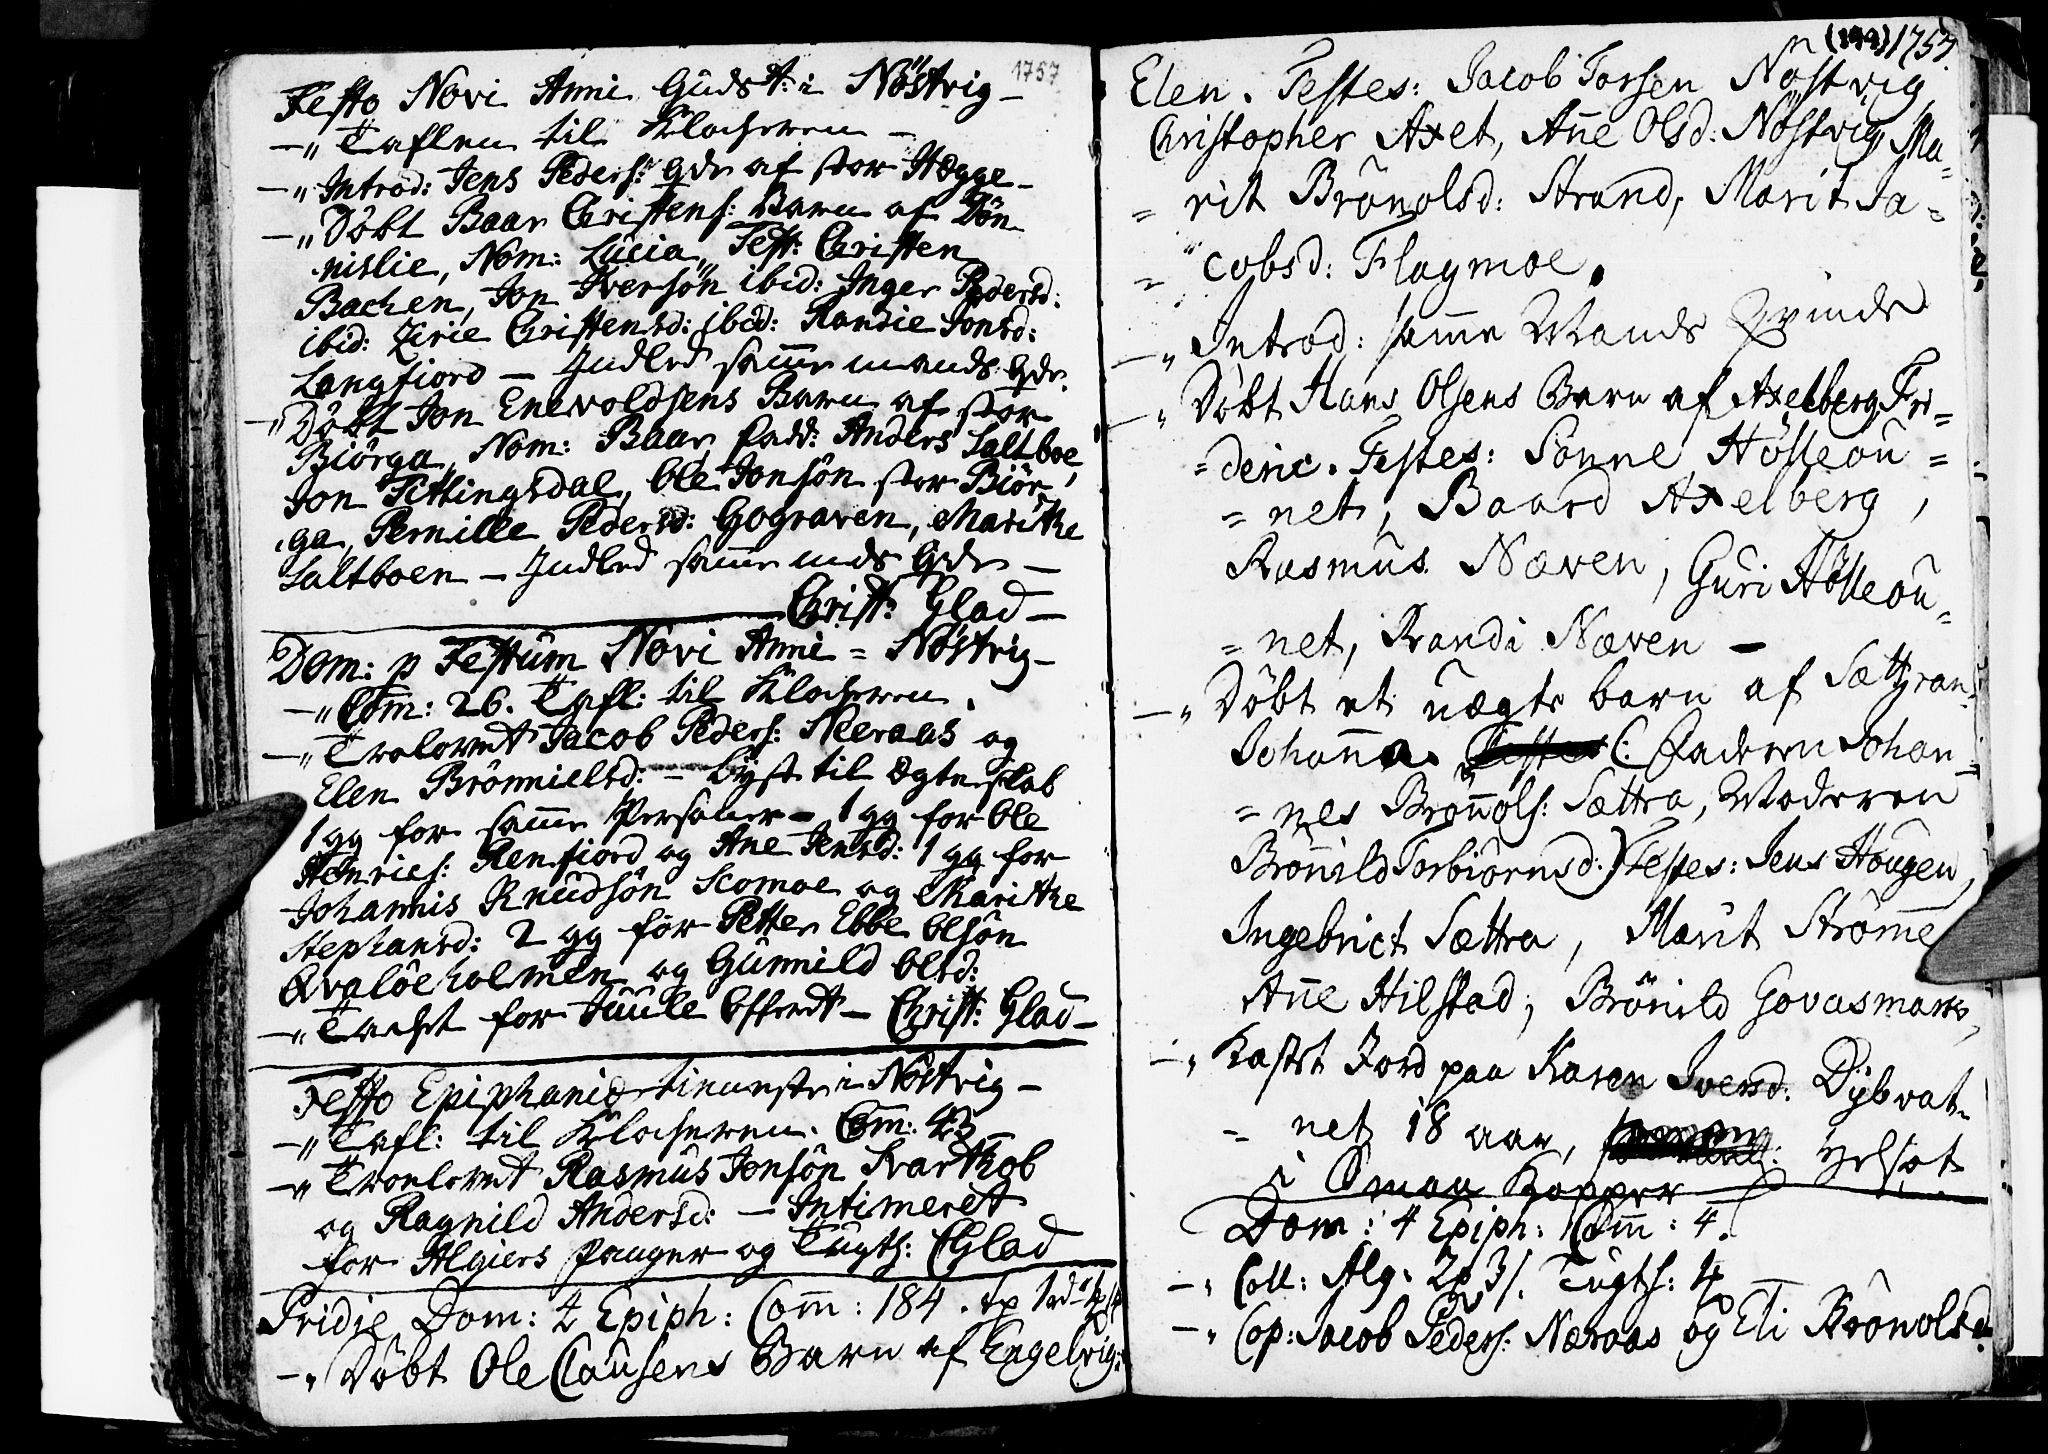 1757
Festo Novi Anni Gudst: i Nöstvig –
–„ Taflen til Klocheren –
–„ Introd: Jens Peders: qde af stor Hegge –
–„ Döbt Baar Christens: Barn af Dön-
nislie, Nom: Lucia, Test: Christen
Bachen, Jon Iversön ibid: Inger Pedersd:
ibid: Zirie Christensd: ibid: Randie Jonsd:
Langfiord – Indled samme mands qde.
–„ Döbt Jon Enevoldsens Barn af stor
Biörga, Nom: Baar, Fadd: Anders Saltboe,
Jon Tittingsdal, Ole Jonsön stor Biör-
ga, Pernille Pedersd: Gograven, Marithe
Saltboen – Indled samme mds qde –
Christ: Glad –
Dom: p Festum Novi Anni = Nöstvig –
–„ Com: 26. Tafl: til Klocheren.
–„ Trolovet Jacob Peders: Neeraas og
Elen Brönnielsd: – Lyst til Ægteskab
1 gg for samme Personer – 1 gg for Ole
Henrichs: Renfiord og Ane Jensd: 1 gg for
Johannis Knudsön Scomoe og Marithe
Stephansd: 2 gg for Petter Ebbe Olsön
Qvalöeholmen og Gunnild Olsd:
–„ Tachet for Juule Offeret – Christ: Glad –
Festo Epiphaniæ tieneste i Nöstvig –
–„ Tafl: til Klocheren. Com: 43 –
–„ Troelovet Rasmus Jonsön Svarthob
og Ragnild Andersd: – Intimeret
for Algiers Fanger og Tugth: CGlad
Pridie Dom: 4 Epiph: Comm: 184.
–„ Döbt Ole Clausens Barn af Engelvig:
(144) 1757.
Elen. Testes: Jacob Torsen Nöstvig
Christopher Axet, Añe Olsd: Nöstvig, Ma-
= rit Brönolsd: Strand, Marit Ja=
= cobsd: Flagmoe.
–„ Introd: samme Mands Qvinde
–„ Döbt Hans Olsens Barn af Axelberg Fri=
= deric. Testes: Sönne Hölleou=
= net, Baard Axelberg,
Rasmus Næven, Guri Hölleou=
= net, Randi Næven –
–„ Döbt et uægte barn af Sættran
Johanna. (: Faderen Johan=
= nes Brönols: Sættra, Moderen
Brönild Torbiörnsd:) Testes: Jens Hougen,
Ingebrict Sættra, Marit Strömme
Añe Hilstad, Brönild Govasmark,
–„ Kastet Jord paa Karen Iversd: Dybvat-
= net 18 aar,
i Smaa Kopper
Dom: 4 Epiph: Comm: 4.
–„ Coll: Alg: Tugth: 4
–„ Cop: Jacob Peders: Næraas og Eli Brönolsd.